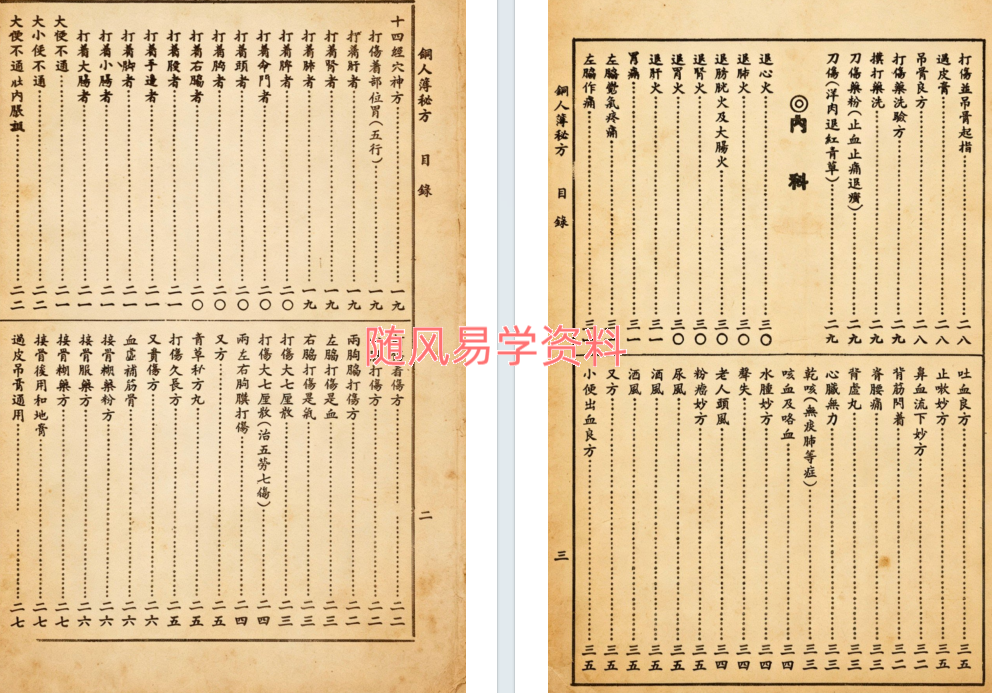 銅人簿秘方 目錄 二
十四經穴神方 一九
打傷着部位胃(五行) 一九
打着肝者 一九
打着腎者 一九
打着肺者 一九
打着脾者 二〇
打着命門者 二〇
打着頭者 二〇
打着胸者 二〇
打着右脇者 二〇
打着股者 二一
打着手邊者 二一
打着脚者 二一
打着小腸者 二一
打着大腸者 二一
大便不通 二一
大小便不通 二二
大便不通肚內脹 二二
着傷方 二二
打傷方 二二
兩胸脇打傷方 二二
左脇打傷是血 二三
右脇打傷是氣 二三
打傷大七厘散 二三
打傷大七厘散(治五勞七傷) 二四
兩左右胸膜打傷 二四
又方 二五
青草秘方丸 二五
打傷久長方 二五
又貴傷方 二六
血症補筋骨 二六
接骨糊藥粉方 二六
接骨服藥方 二六
接骨糊藥方 二七
接骨後用和地膏 二七
過皮吊膏通用 二七
銅人簿秘方 目錄 三
打傷並吊膏起指 二八
過皮膏 二八
吊膏良方 二八
打傷藥洗驗方 二九
撲打藥洗 二九
刀傷藥粉(止血止痛退癀) 二九
刀傷(洋肉退紅青草) 二九
◎內科
退心火 三〇
退肺火 三〇
退膀胱火及大腸火 三〇
退腎火 三〇
退胃火 三〇
退肝火 三一
胃痛 三一
左脇鬱氣疼痛
左脇作痛
吐血良方 三五
止嗽妙方 三五
鼻血流下妙方 三二
背筋閃着 三二
脊腰痛 三三
背虛丸 三三
心臟無力 三三
乾咳(無痰肺等症) 三三
咳血及咯血 三四
水腫妙方 三四
聲失 三四
老人頭風 三四
粉瘤妙方 三五
尿風 三五
酒風 三五
洒風 三五
又方 三五
小便出血良方 三五
随风易学资料